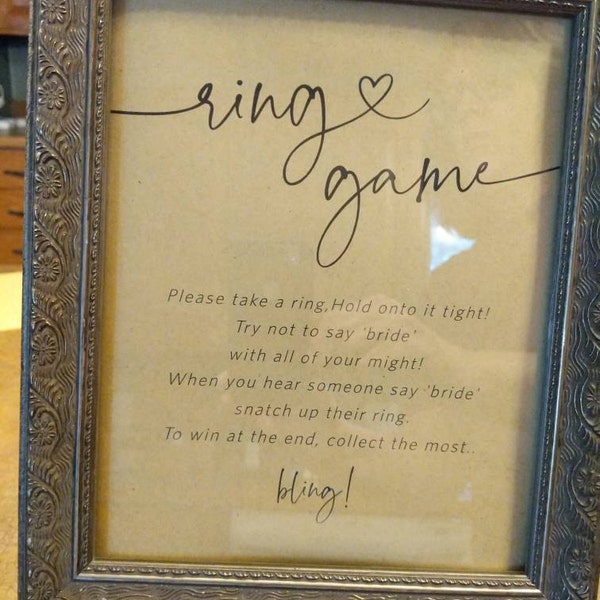 ring
game
Please take a ring,Hold onto it tight!
Try not to say 'bride'
with all of your might!
When you hear someone say 'bride'
snatch up their ring.
To win at the end, collect the most..
bling!